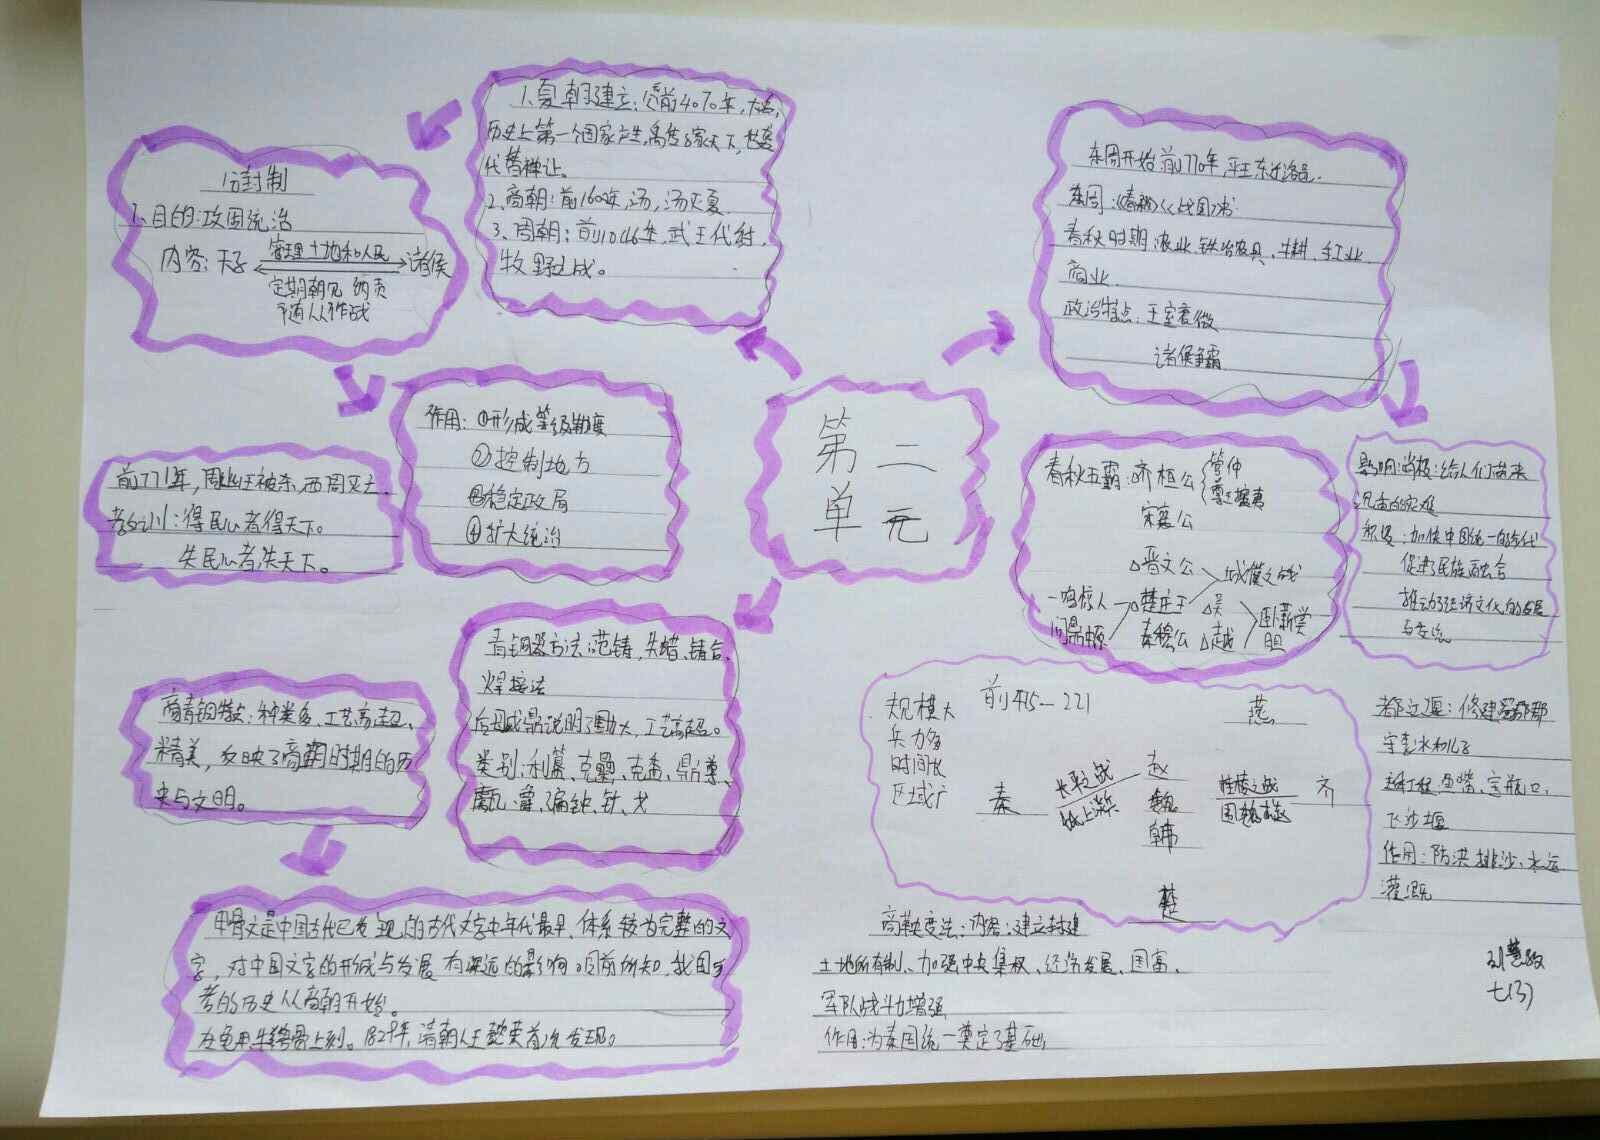 第二
单元
1、夏朝建立：公前2070年，大禹，
历史上第一个国家产生，禹传启家天下，世袭
代替禅让。
2、商朝：前1600年，汤，汤灭夏
3、周朝：前1046年，武王伐纣，
牧野之战。
分封制
1、目的：巩固统治
内容：天子 管理土地和人民 诸侯
定期朝见 纳贡
带兵作战
作用：①形成等级制度
②控制地方
③稳定政局
④扩大统治
前771年，周幽王被杀，西周灭亡。
教训：得民心者得天下。
失民心者失天下。
东周开始前770年，平王东迁洛邑。
东周：《春秋》《战国》
春秋时期：农业，铁冶农具，牛耕，手工业
商业
政治特点：王室衰微
诸侯争霸
春秋五霸：齐桓公 管仲
尊王攘夷
宋襄公
△晋文公 城濮之战
一鸣惊人 △楚庄王 △吴 卧薪尝
问鼎中原 秦穆公 △越 胆
影响：消极：给人们带来
沉重的灾难
积极：加快中国统一的步伐
促进了民族融合
推动了经济文化的发展
与交流
青铜器方法：范铸，失蜡、铸合、
焊接法
后母戊鼎说明了国力大，工艺高超。
商青铜特点：种类多、工艺高超、
精美，反映了商朝时期的历
史与文明。
甲骨文是中国古代已发现的古代文字中年代最早、体系较为完整的文
字，对中国文字的形成与发展有深远的影响。目前所知，我国可
考的历史从商朝开始。
清朝人王懿荣首次发现。
规模大 前475—221 燕
兵力多
时间长
区域广
秦 长平之战 纸上谈兵
赵
魏
韩
桂陵之战 围魏救赵 齐
楚
都江堰：修建蜀郡郡
守李冰和儿子
主体工程，鱼嘴、宝瓶口、
飞沙堰
作用：防洪、排沙、水运
灌溉
商鞅变法：内容：建立封建
土地所有制、加强中央集权、经济发展、国富、
军队战斗力增强
作用：为秦国统一奠定了基础
七(3)